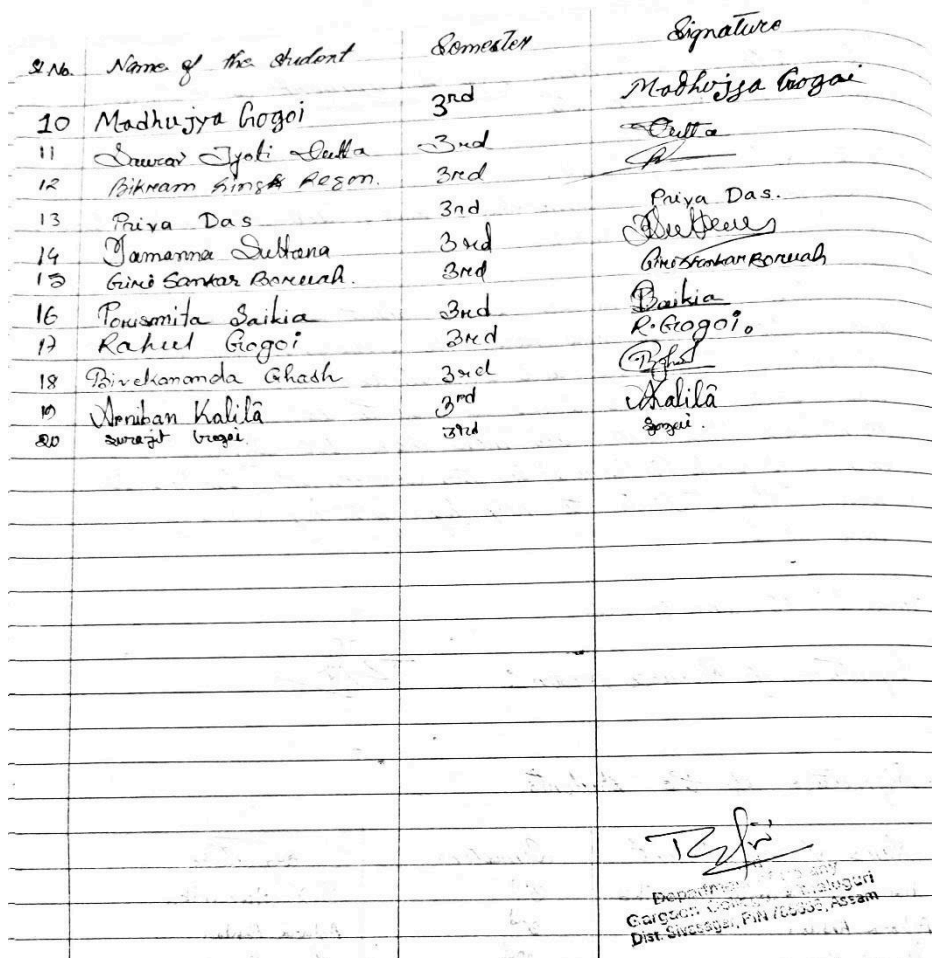 Sl No. Name of the student Semester Signature
10 Madhujya Gogoi 3rd Madhujya Gogoi
11 Saurav Jyoti Dutta 3rd Dutta
12 Bikram Singh Regon. 3rd
13 Priya Das 3rd Priya Das.
14 Tamanna Sultana 3rd
15 Giri Sankar Boruah. 3rd Giri Sankar Boruah
16 Porismita Saikia 3rd Saikia
17 Rahul Gogoi 3rd R. Gogoi.
18 Bivekananda Ghash 3rd
19 Arniban Kalilâ 3rd Kalilâ
20 Surajit Gogoi. 3rd Gogoi.
Department
Gargaon
Dist. Sivasagar, PIN 785686, Assam